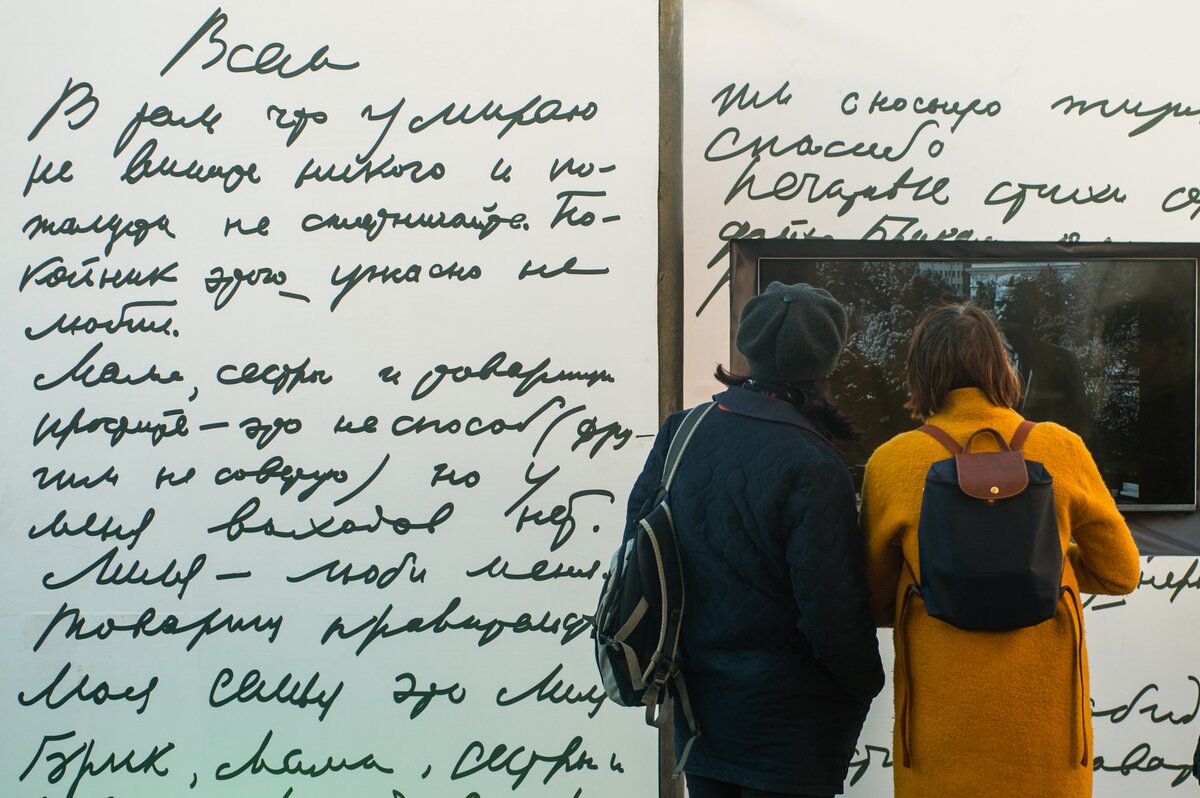 Всем
В том что умираю
не вините никого и по-
жалуйста не сплетничайте. По-
койник этого ужасно не
любил.
Мама, сестры и товарищи
простите — это не способ (дру-
гим не советую) но у
меня выходов нет.
Лиля — люби меня.
Товарищ правительст
Моя семья это Лиля
Брик, мама, сестры и
им сносную жизн
спасибо
Начатые стихи от
дайте Брикам